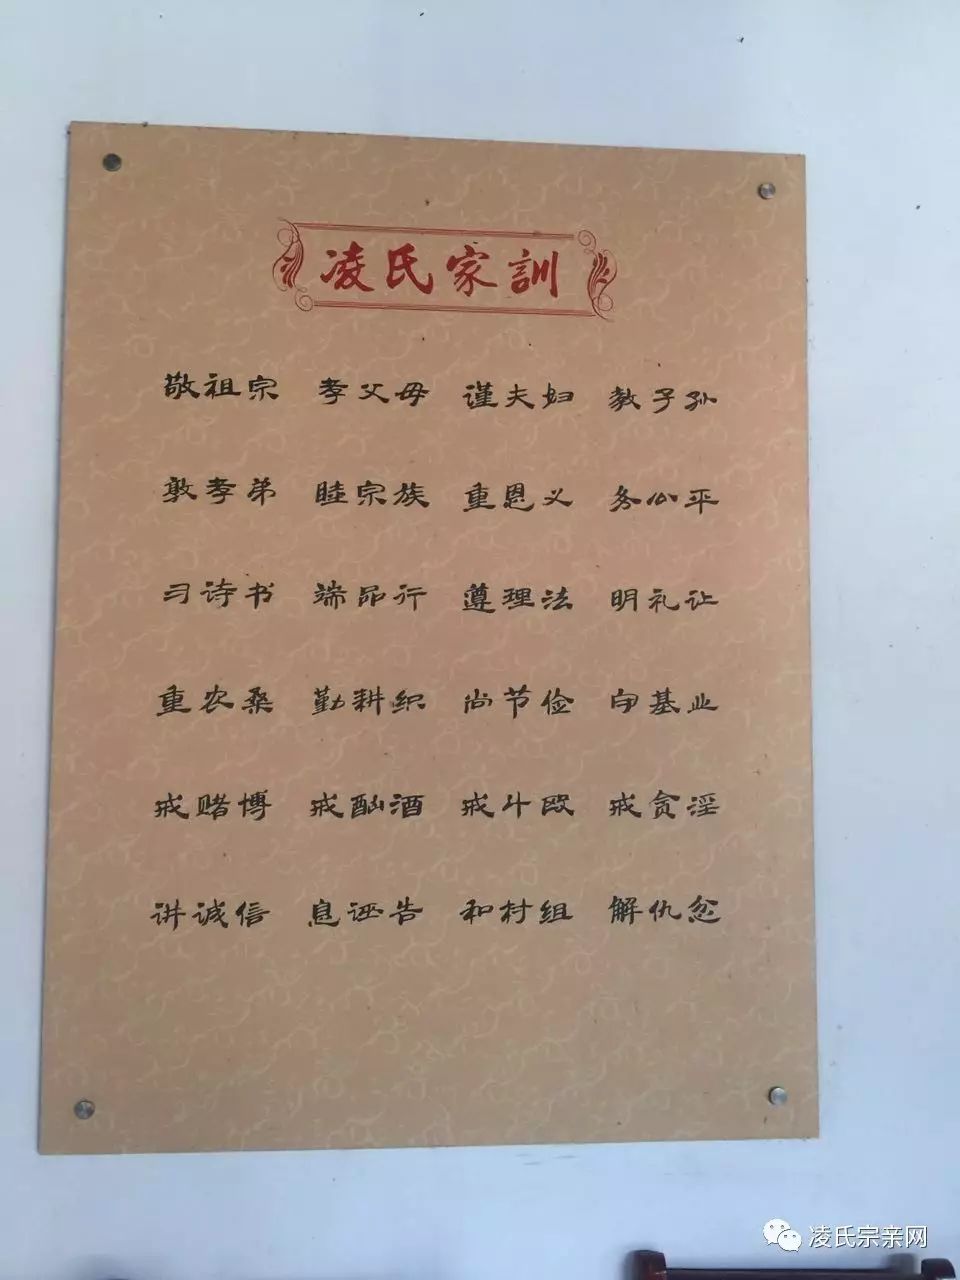 凌氏家訓
敬祖宗 孝父母 谨夫妇 教子孙
敦孝弟 睦宗族 重恩义 务公平
习诗书 端品行 遵理法 明礼让
重农桑 勤耕织 尚节俭 守基业
戒赌博 戒酗酒 戒斗殴 戒贪淫
讲诚信 息诬告 和村组 解仇忿
凌氏宗亲网